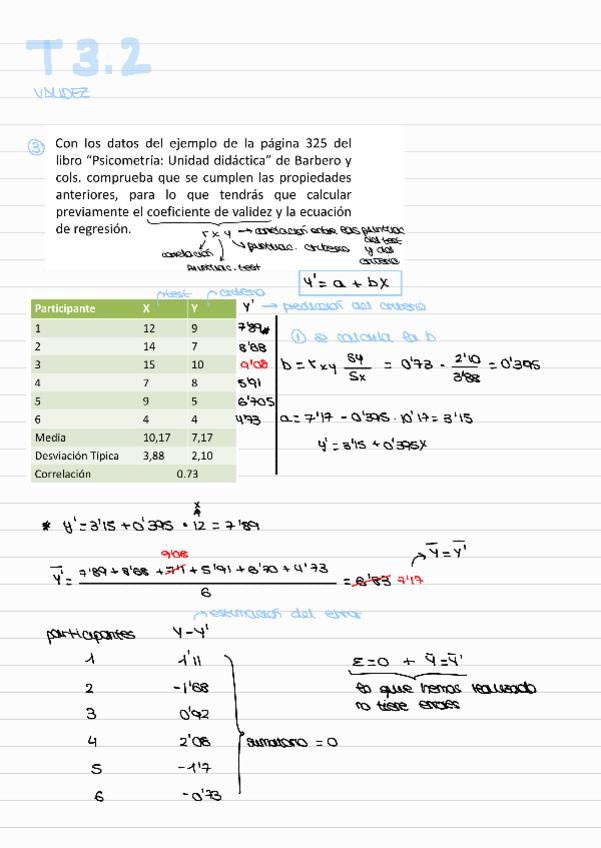 T 3.2
VALIDEZ
③ Con los datos del ejemplo de la página 325 del
libro “Psicometría: Unidad didáctica” de Barbero y
cols. comprueba que se cumplen las propiedades
anteriores, para lo que tendrás que calcular
previamente el coeficiente de validez y la ecuación
de regresión.
r x y → correlación entre las puntuac. del test y del criterio
puntuac. criterio
correlación
puntuac. test
y' = a + bx
test criterio
Participante X Y y' → predicción del criterio
1 12 9 7'89*
2 14 7 8'68
3 15 10 9'08
4 7 8 5'91
5 9 5 6'705
6 4 4 4'73
Media 10,17 7,17
Desviación Típica 3,88 2,10
Correlación 0.73
① se calcula la b
b = rxy Sy/Sx = 0'73 · 2'10/3'88 = 0'395
a = 7'17 - 0'395 · 10'17 = 3'15
y' = 3'15 + 0'395x
x
* y' = 3'15 + 0'395 · 12 = 7'89
9'08
ȳ' = 7'89 + 8'68 + 7'1 + 5'91 + 6'70 + 4'73 / 6 = 6'83 7'17
ȳ = ȳ'
→ estimación del error
participantes Y-Y'
1 1'11
2 -1'68
3 0'92
4 2'08
5 -1'7
6 -0'73
sumatorio = 0
ε=0 + ȳ=ȳ'
lo que hemos realizado
no tiene errores